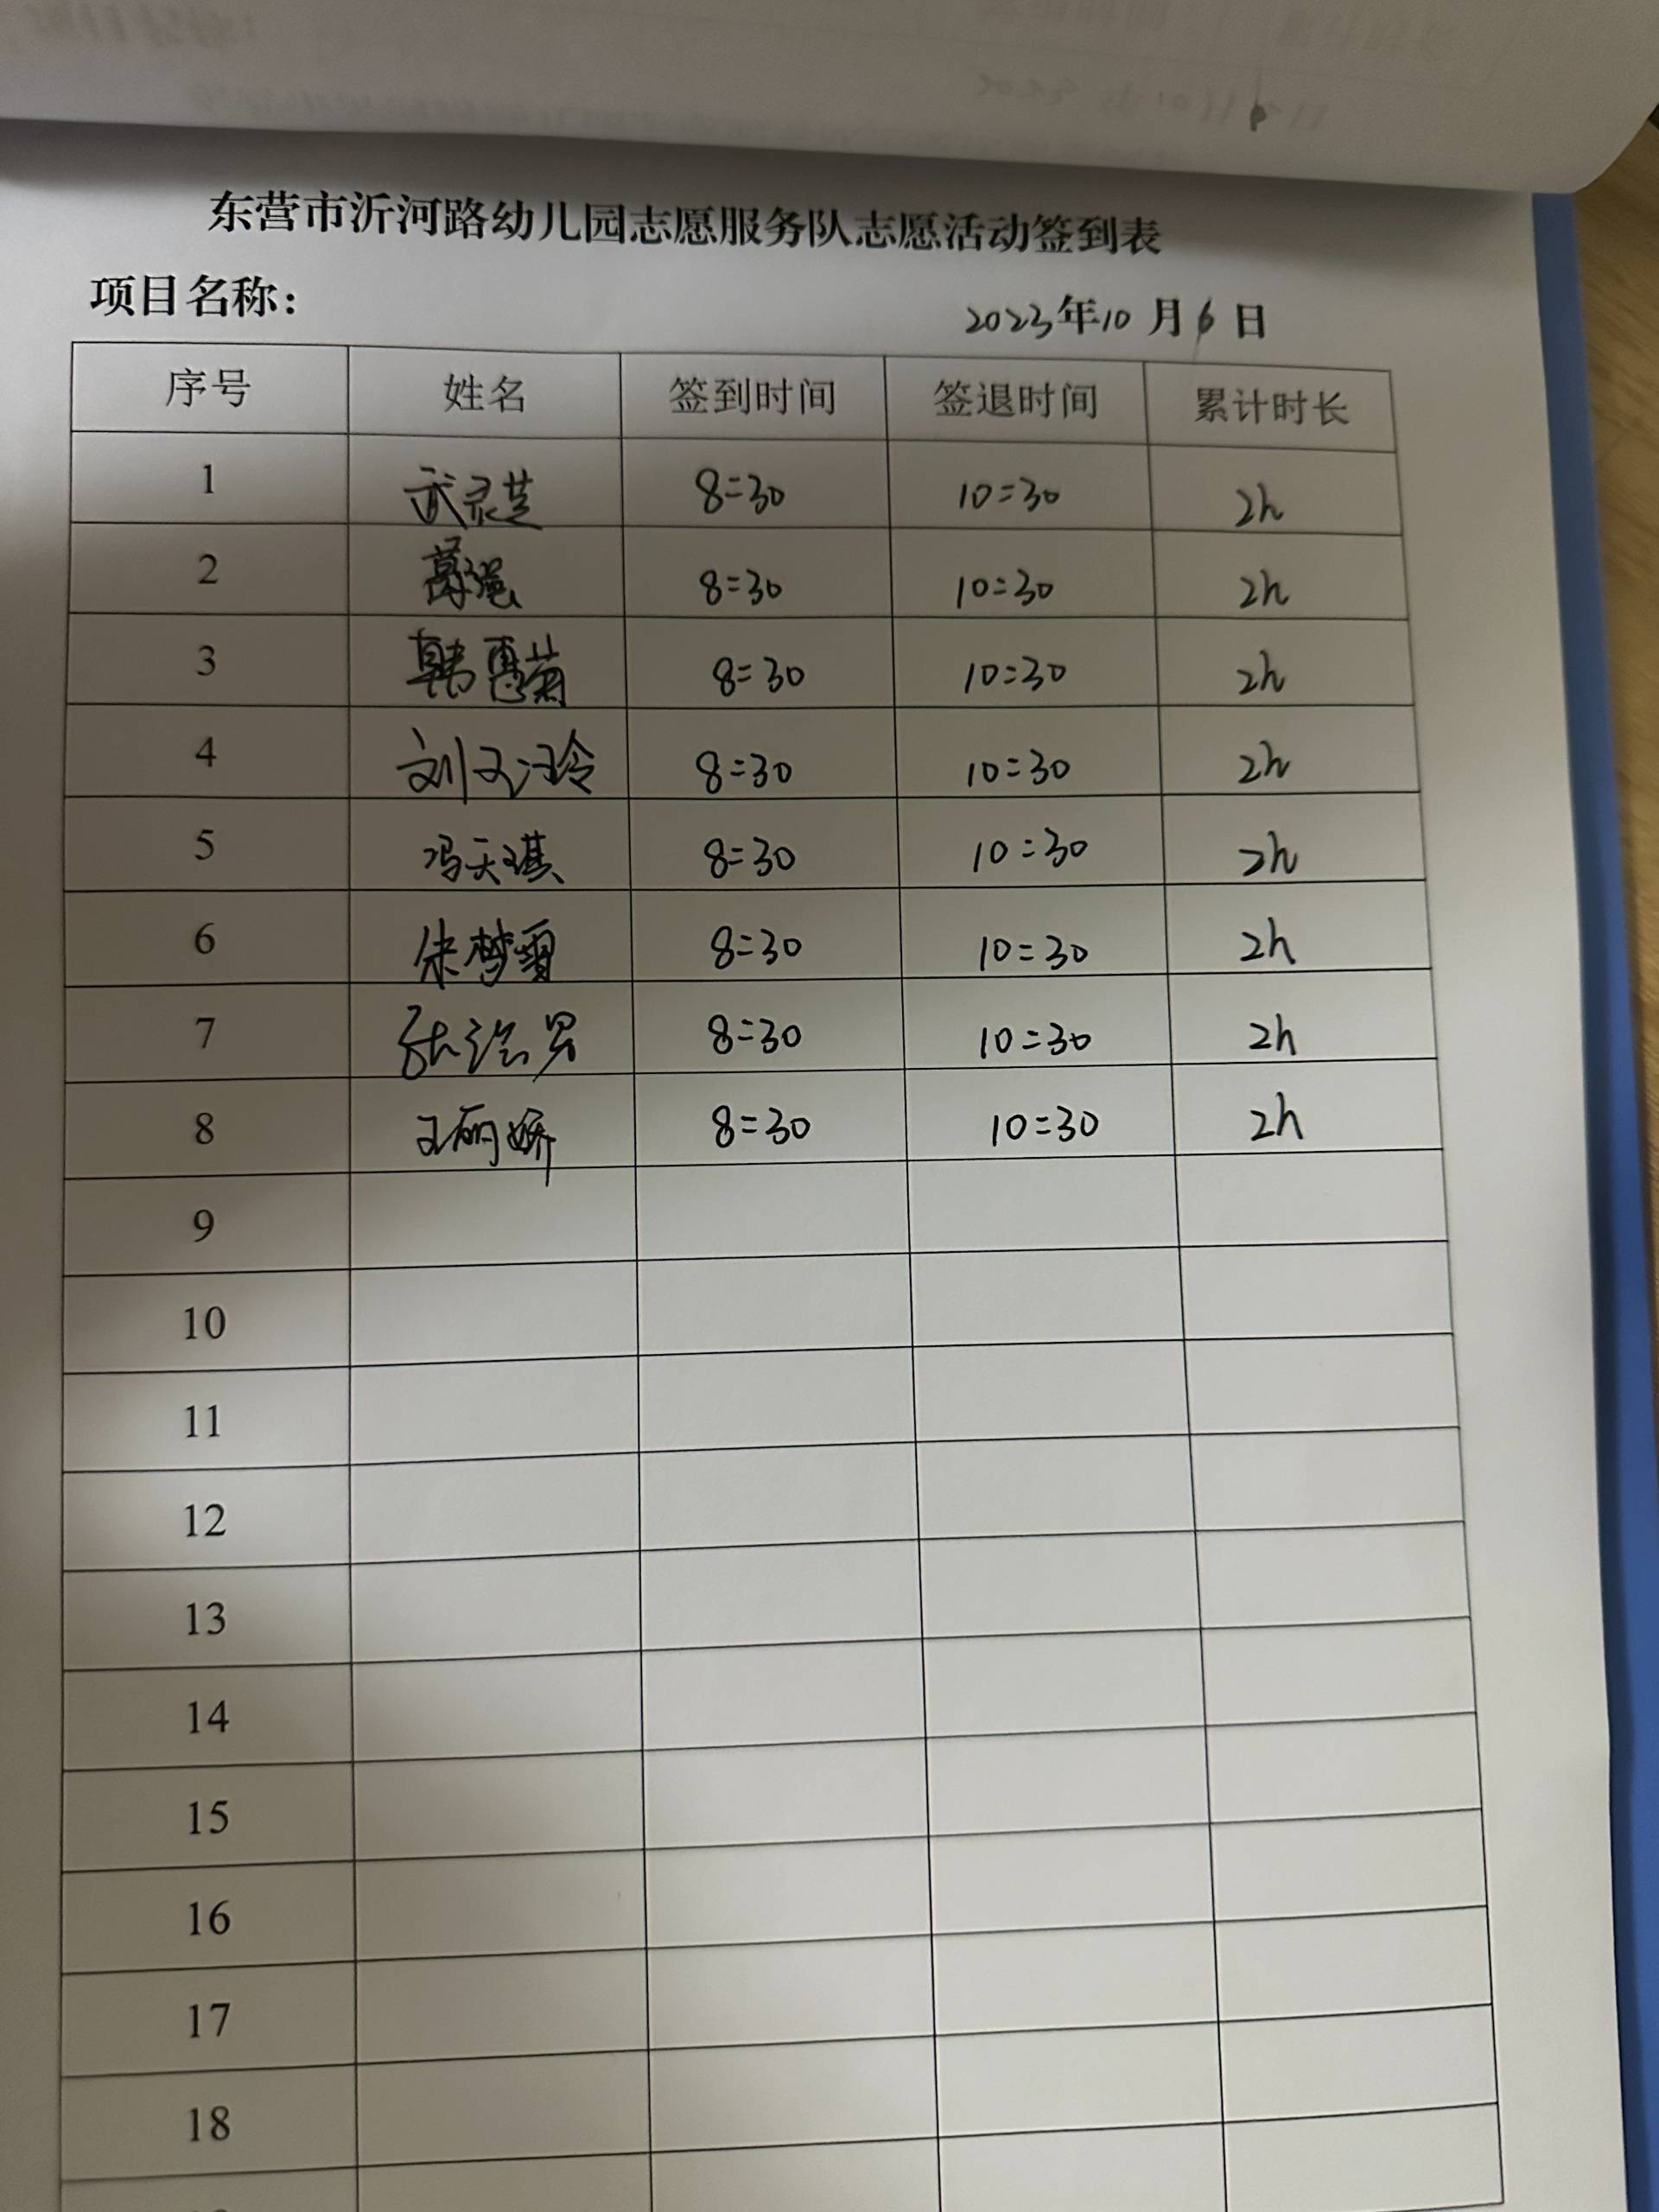 东营市沂河路幼儿园志愿服务队志愿活动签到表
项目名称：
2023年10月6日
序号 姓名 签到时间 签退时间 累计时长
1 武灵芝 8:30 10:30 2h
2 8:30 10:30 2h
3 韩惠菊 8:30 10:30 2h
4 刘文玲 8:30 10:30 2h
5 冯天琪 8:30 10:30 2h
6 朱梦雪 8:30 10:30 2h
7 8:30 10:30 2h
8 王丽娇 8:30 10:30 2h
9
10
11
12
13
14
15
16
17
18